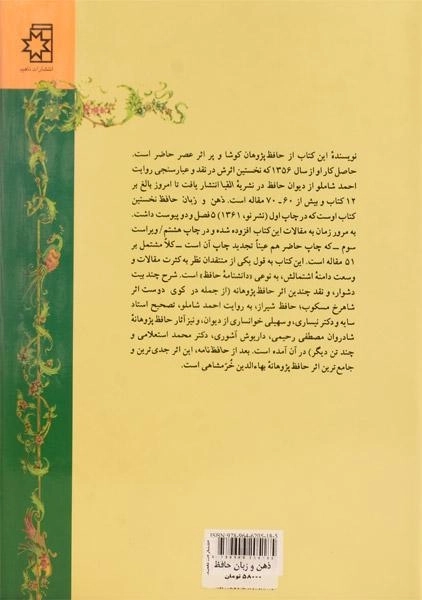 انتشارات ناهید
نویسندهٔ این کتاب از حافظ‌پژوهان کوشا و پر اثر عصر حاضر است.
حاصل کار او از سال ۱۳۵۶ که نخستین اثرش در نقد و عیارسنجی روایت
احمد شاملو از دیوان حافظ در نشریهٔ الفبا انتشار یافت تا امروز بالغ بر
۱۲ کتاب و بیش از ۶۰ ـ ۷۰ مقاله است. ذهن و زبان حافظ نخستین
کتاب اوست که در چاپ اول (نشر نو، ۱۳۶۱) ۵ فصل و دو پیوست داشت.
به مرور زمان به مقالات این کتاب افزوده شده و در چاپ هشتم/ویراست
سوم ـ که چاپ حاضر هم عیناً تجدید چاپ آن است ـ کلاً مشتمل بر
۵۱ مقاله است. این کتاب به قول یکی از منتقدان نظر به کثرت مقالات و
وسعت دامنهٔ اشتمالش، به نوعی «دانشنامهٔ حافظ» است. شرح چند بیت
دشوار، و نقد چندین اثر حافظ پژوهانه (از جمله در کوی دوست اثر
شاهرخ مسکوب، حافظ شیراز، به روایت احمد شاملو، تصحیح استاد
سایه و دکتر نیساری، و سهیلی خوانساری از دیوان، و نیز آثار حافظ پژوهانهٔ
شادروان مصطفی رحیمی، داریوش آشوری، دکتر محمد استعلامی و
چند تن دیگر) در آن آمده است. بعد از حافظ‌نامه، این اثر جدی‌ترین و
جامع‌ترین اثر حافظ پژوهانهٔ بهاءالدین خُرّمشاهی است.
ISBN: 978-964-6205-18-5
ذهن و زبان حافظ
۵۸۰۰۰ تومان